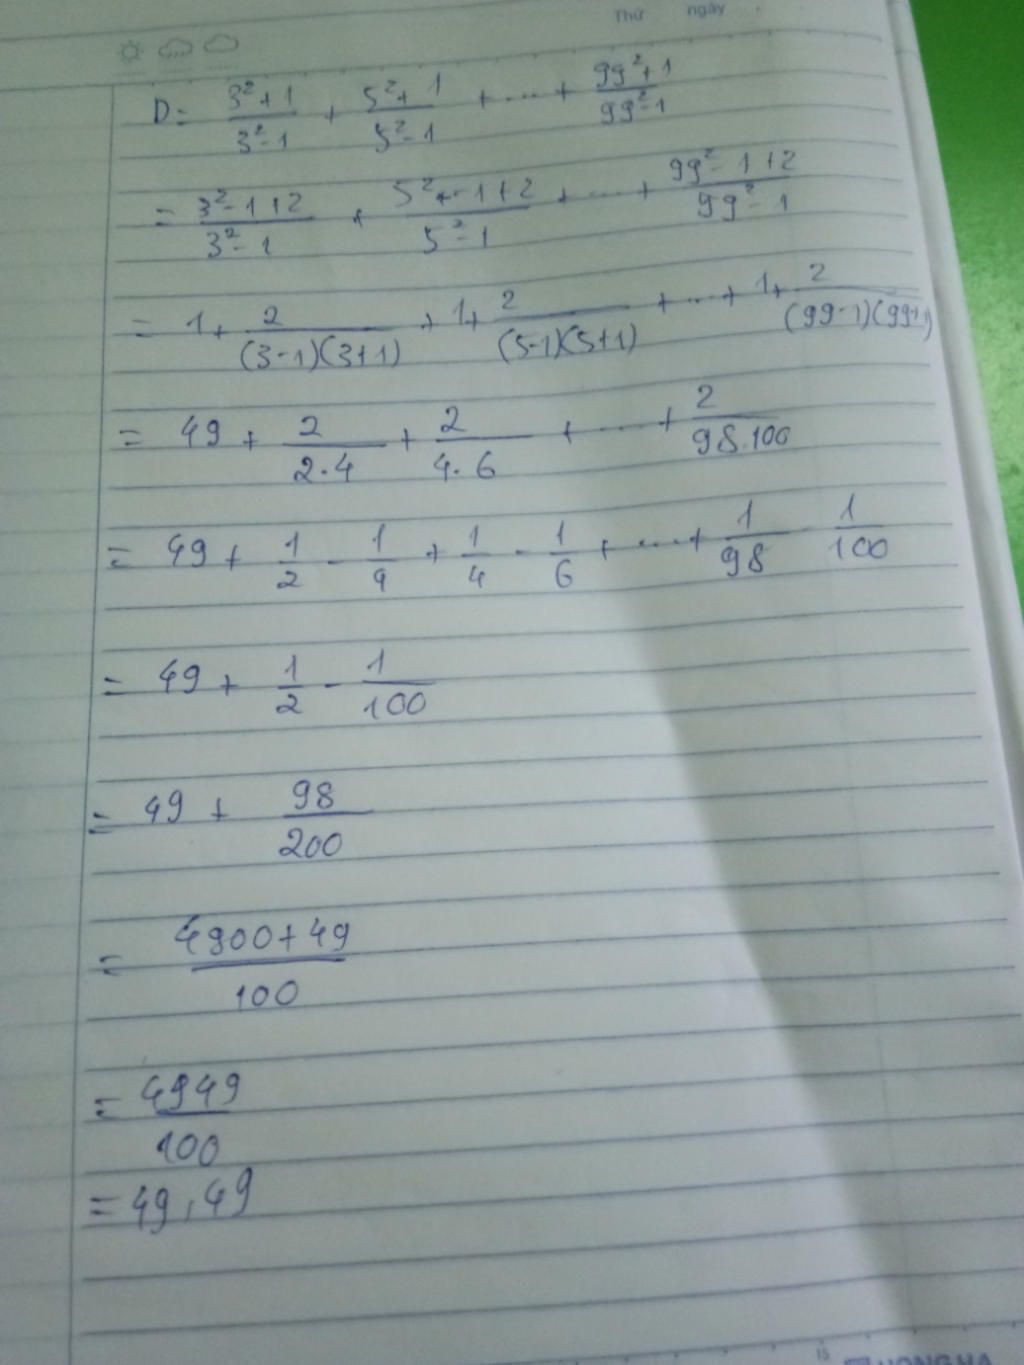 Thứ ngày
D = \frac{3^2+1}{3^2-1} + \frac{5^2+1}{5^2-1} + .... + \frac{99^2+1}{99^2-1}
= \frac{3^2-1+2}{3^2-1} + \frac{5^2-1+2}{5^2-1} + .... + \frac{99^2-1+2}{99^2-1}
= 1 + \frac{2}{(3-1)(3+1)} + 1 + \frac{2}{(5-1)(5+1)} + .... + 1 + \frac{2}{(99-1)(99+1)}
= 49 + \frac{2}{2.4} + \frac{2}{4.6} + .... + \frac{2}{98.100}
= 49 + \frac{1}{2} - \frac{1}{4} + \frac{1}{4} - \frac{1}{6} + .... + \frac{1}{98} - \frac{1}{100}
= 49 + \frac{1}{2} - \frac{1}{100}
= 49 + \frac{98}{200}
= \frac{4900+49}{100}
= \frac{4949}{100}
= 49,49
15